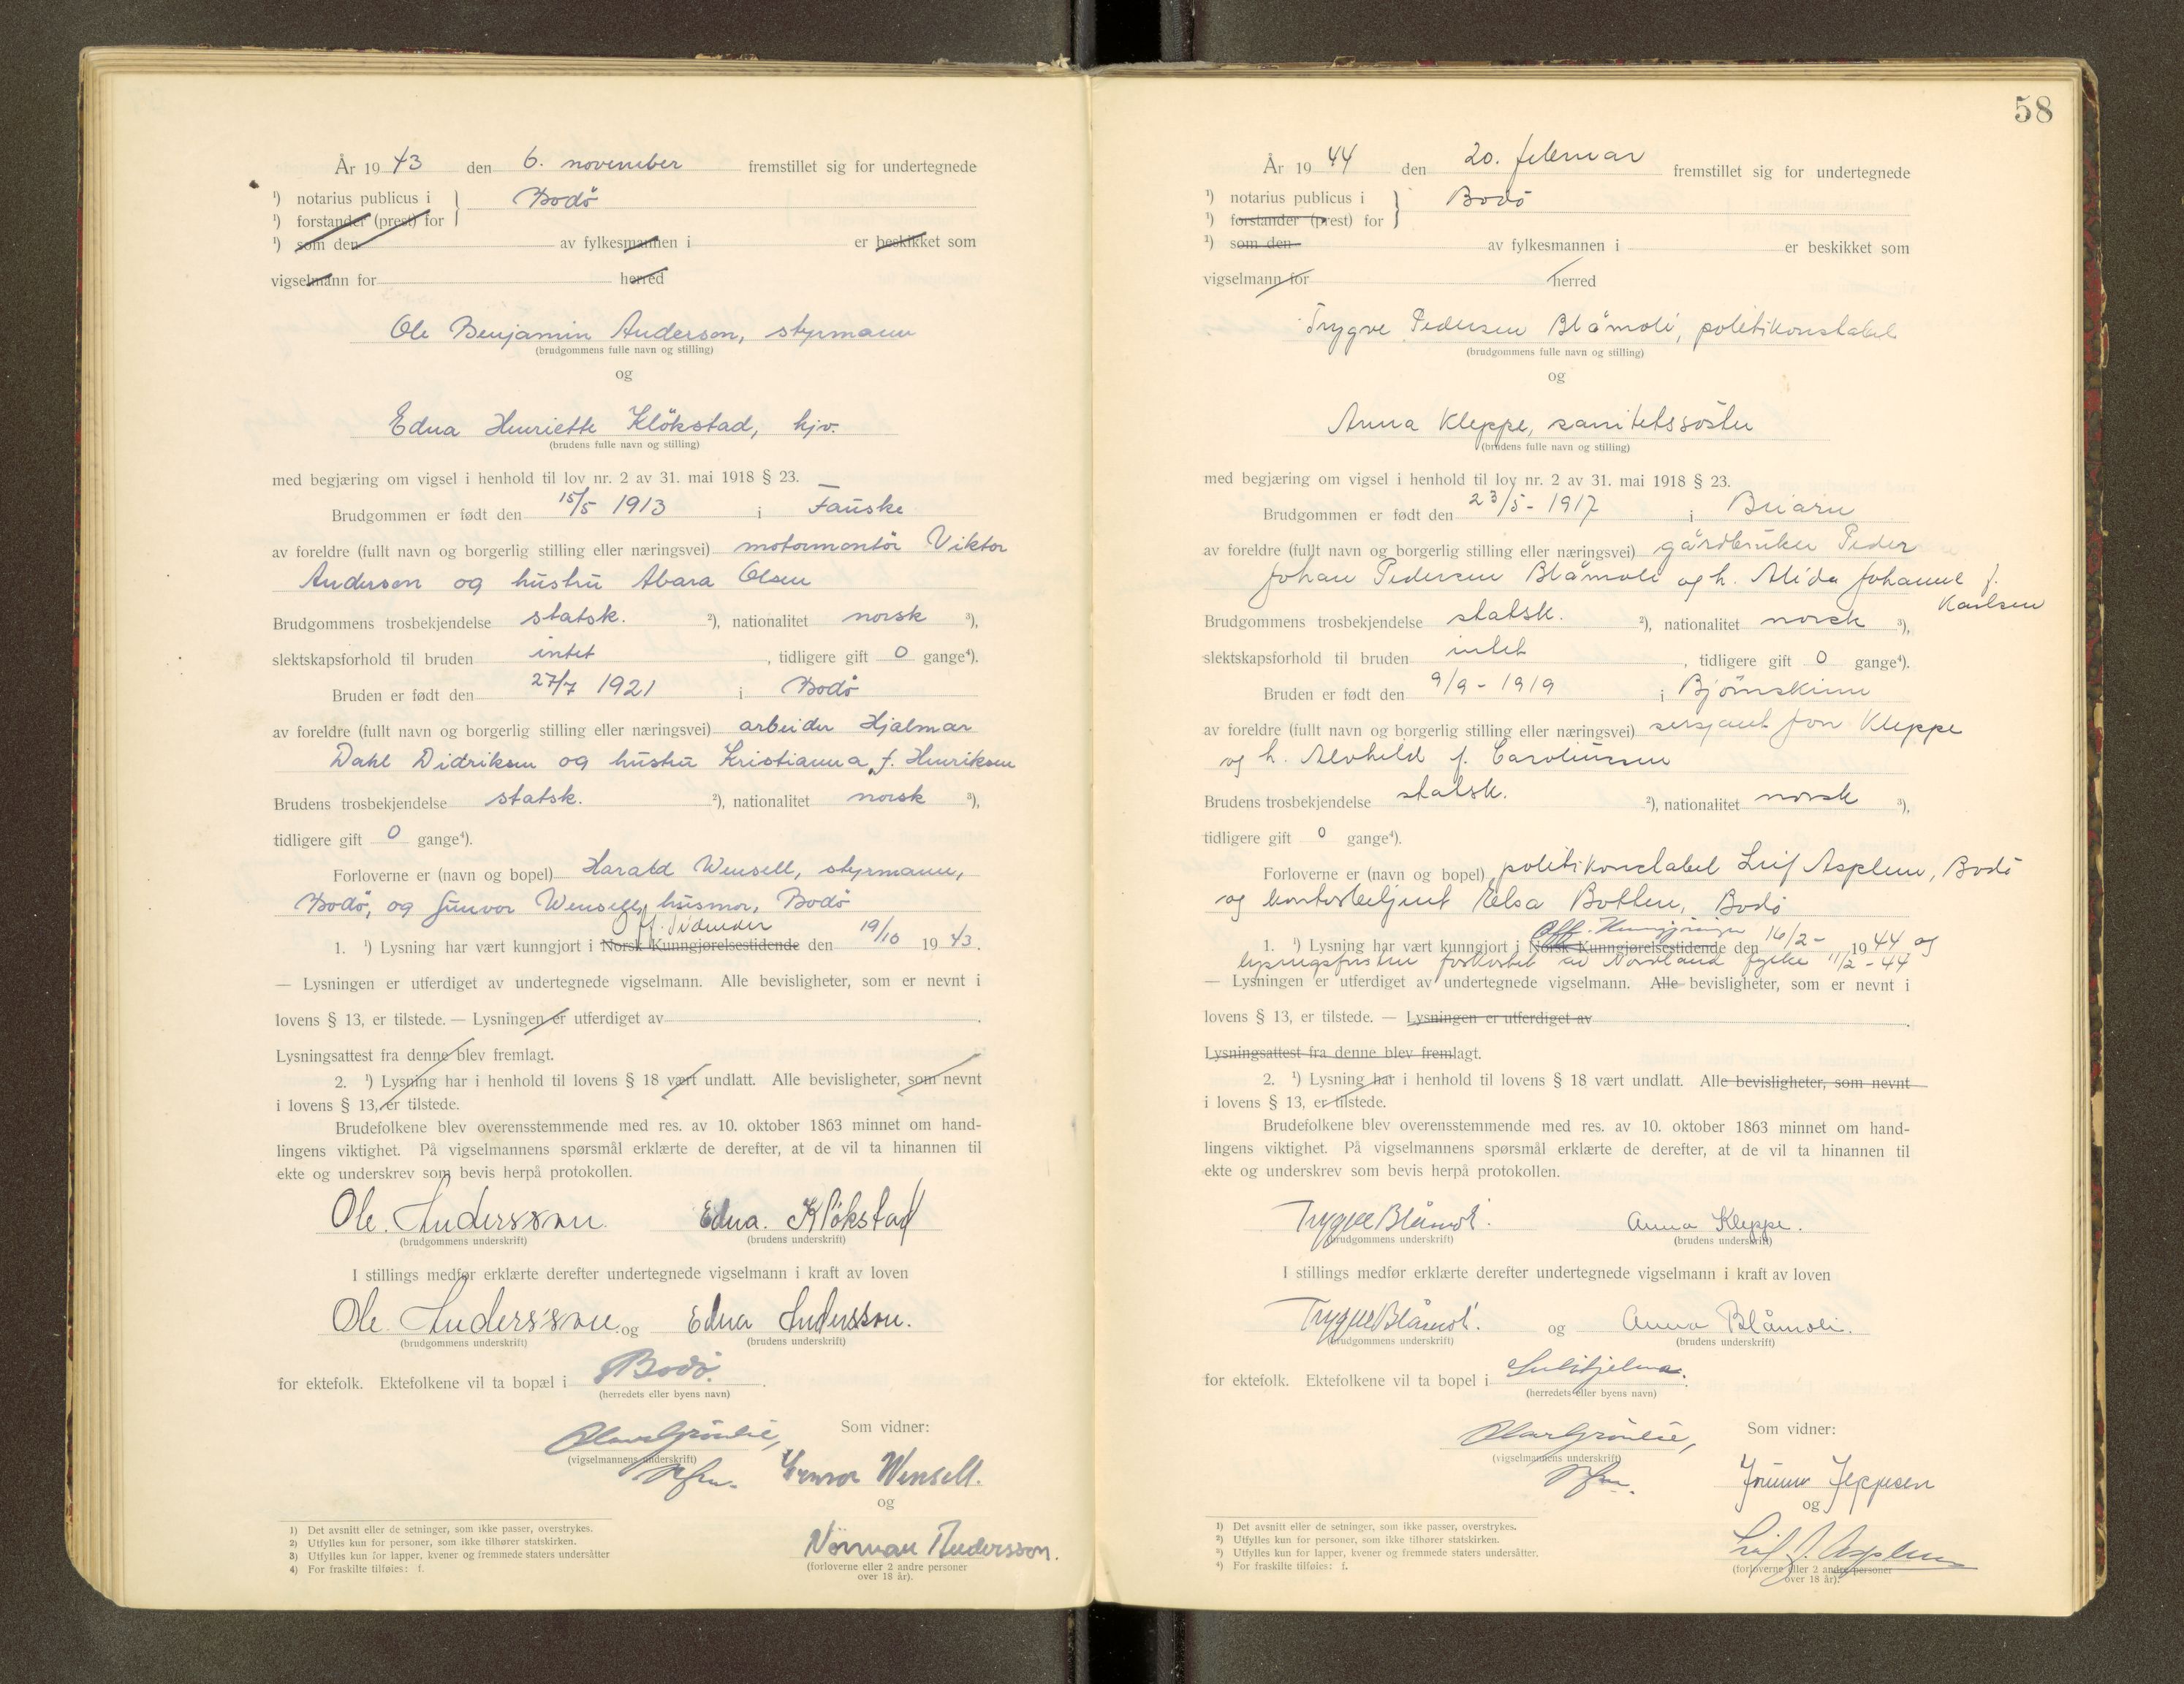 År 19 43 den 6. november fremstillet sig for undertegnede
¹) notarius publicus i } Bodö
¹) forstander (prest) for
¹) som den av fylkesmannen i er beskikket som
vigselmann for herred
Ole Benjamin Anderson, styrmann
(brudgommens fulle navn og stilling)
og
Edna Henriette Klökstad, hjv.
(brudens fulle navn og stilling)
med begjæring om vigsel i henhold til lov nr. 2 av 31. mai 1918 § 23.
Brudgommen er født den 15/5 1913 i Fauske
av foreldre (fullt navn og borgerlig stilling eller næringsvei) motormontör Viktor
Anderson og hustru Abara Olsen
Brudgommens trosbekjendelse statsk. ²), nationalitet norsk ³),
slektskapsforhold til bruden intet , tidligere gift 0 gange⁴).
Bruden er født den 27/7 1921 i Bodö
av foreldre (fullt navn og borgerlig stilling eller næringsvei) arbeider Hjalmar
Dahl Didriksen og hustru Kristianna, f. Henriksen
Brudens trosbekjendelse statsk. ²), nationalitet norsk ³),
tidligere gift 0 gange⁴).
Forloverne er (navn og bopel) Harald Wensell, styrmann,
Bodö, og Gunvor Wensell, husmor, Bodö
Off. Tidender
1. ¹) Lysning har vært kunngjort i Norsk Kunngjørelsestidende den 19/10 19 43.
— Lysningen er utferdiget av undertegnede vigselmann. Alle bevisligheter, som er nevnt i
lovens § 13, er tilstede. — Lysningen er utferdiget av .
Lysningsattest fra denne blev fremlagt.
2. ¹) Lysning har i henhold til lovens § 18 vært undlatt. Alle bevisligheter, som nevnt
i lovens § 13, er tilstede.
Brudefolkene blev overensstemmende med res. av 10. oktober 1863 minnet om hand-
lingens viktighet. På vigselmannens spørsmål erklærte de derefter, at de vil ta hinannen til
ekte og underskrev som bevis herpå protokollen.
Ole. Andersson. Edna. Klökstad
(brudgommens underskrift) (brudens underskrift)
I stillings medfør erklærte derefter undertegnede vigselmann i kraft av loven
Ole. Andersson. og Edna Andersson.
(brudgommens underskrift) (brudens underskrift)
for ektefolk. Ektefolkene vil ta bopæl i Bodö.
(herredets eller byens navn)
Som vidner:
(vigselmannens underskrift)
Gunvor Wensell.
og
Norman Andersson.
(forloverne eller 2 andre personer
over 18 år).
1) Det avsnitt eller de setninger, som ikke passer, overstrykes.
2) Utfylles kun for personer, som ikke tilhører statskirken.
3) Utfylles kun for lapper, kvener og fremmede staters undersåtter
4) For fraskilte tilføies: f.
58
År 19 44 den 20. februar fremstillet sig for undertegnede
¹) notarius publicus i } Bodö
¹) forstander (prest) for
¹) som den av fylkesmannen i er beskikket som
vigselmann for herred
Trygve Pedersen Blåmoli, politikonstabel
(brudgommens fulle navn og stilling)
og
Anna Kleppe, sanitetssöster
(brudens fulle navn og stilling)
med begjæring om vigsel i henhold til lov nr. 2 av 31. mai 1918 § 23.
Brudgommen er født den 23/5 - 1917 i Beiarn
av foreldre (fullt navn og borgerlig stilling eller næringsvei) gårdbruker Peder
Johan Pedersen Blåmoli og h. Alida Johanne f.
Karlsen
Brudgommens trosbekjendelse statsk. ²), nationalitet norsk ³),
slektskapsforhold til bruden intet , tidligere gift 0 gange⁴).
Bruden er født den 9/9 - 1919 i Bjørnskinn
av foreldre (fullt navn og borgerlig stilling eller næringsvei) sersjant Jon Kleppe
og h. Alvhild f. Caroliussen
Brudens trosbekjendelse statsk. ²), nationalitet norsk ³),
tidligere gift 0 gange⁴).
Forloverne er (navn og bopel) politikonstabel Leif Asplem, Bodö
og kontorbetjent Elsa Botten, Bodö
Off. Kunngjøringer
1. ¹) Lysning har vært kunngjort i Norsk Kunngjørelsestidende den 16/2 - 19 44 og
lysningsfristen forkortet av Nordland fylke 11/2 - 44
— Lysningen er utferdiget av undertegnede vigselmann. Alle bevisligheter, som er nevnt i
lovens § 13, er tilstede. — Lysningen er utferdiget av .
Lysningsattest fra denne blev fremlagt.
2. ¹) Lysning har i henhold til lovens § 18 vært undlatt. Alle bevisligheter, som nevnt
i lovens § 13, er tilstede.
Brudefolkene blev overensstemmende med res. av 10. oktober 1863 minnet om hand-
lingens viktighet. På vigselmannens spørsmål erklærte de derefter, at de vil ta hinannen til
ekte og underskrev som bevis herpå protokollen.
Trygve Blåmoli. Anna Kleppe.
(brudgommens underskrift) (brudens underskrift)
I stillings medfør erklærte derefter undertegnede vigselmann i kraft av loven
Trygve Blåmoli. og Anna Blåmoli.
(brudgommens underskrift) (brudens underskrift)
for ektefolk. Ektefolkene vil ta bopel i Sulitjelma.
(herredets eller byens navn)
Som vidner:
(vigselmannens underskrift)
Jeppesen
og
Leif J. Asplem
(forloverne eller 2 andre personer
over 18 år).
1) Det avsnitt eller de setninger, som ikke passer, overstrykes.
2) Utfylles kun for personer, som ikke tilhører statskirken.
3) Utfylles kun for lapper, kvener og fremmede staters undersåtter.
4) For fraskilte tilføies: f.